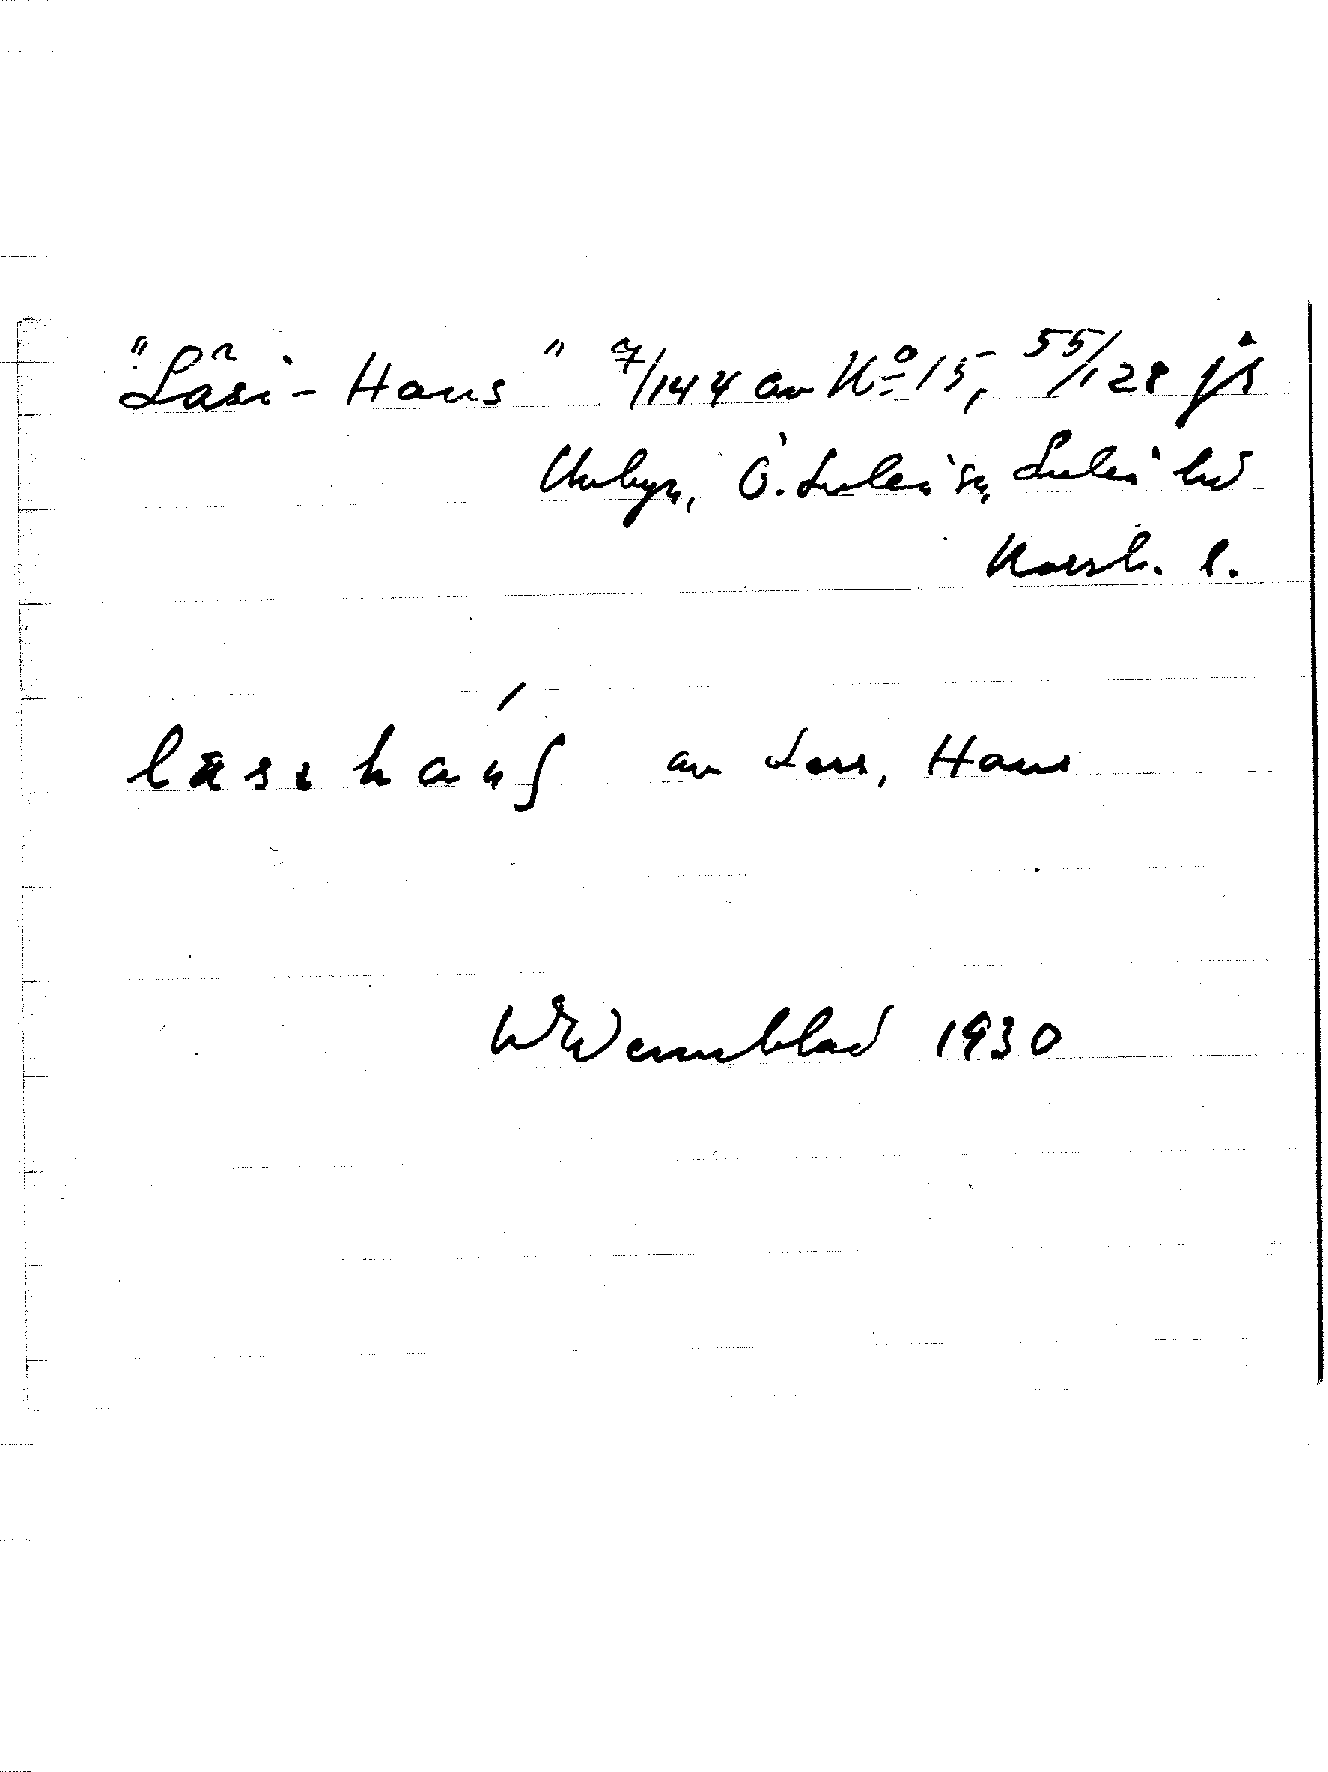 "Läsi-Hans" 7/144 av No 15, 55/128 js
Unbyn, Ö. Luleå sn, Luleå hd
Norrb. l.
læsɩhanʃ av Lars, Hans
W Wennblad 1930